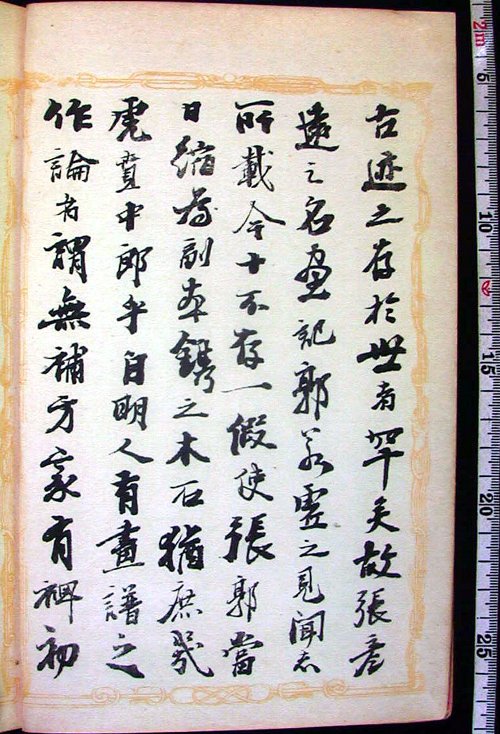 古迹之存於世者罕矣故張彥
遠之名画記郭若虛之見聞志
所載今十不存一假使張郭當
日縮為副本鐫之木石猶庶幾
虎賁中郎乎自明人有畫譜之
作論者謂無補方家有裨初
2m
5
10
15
20
25